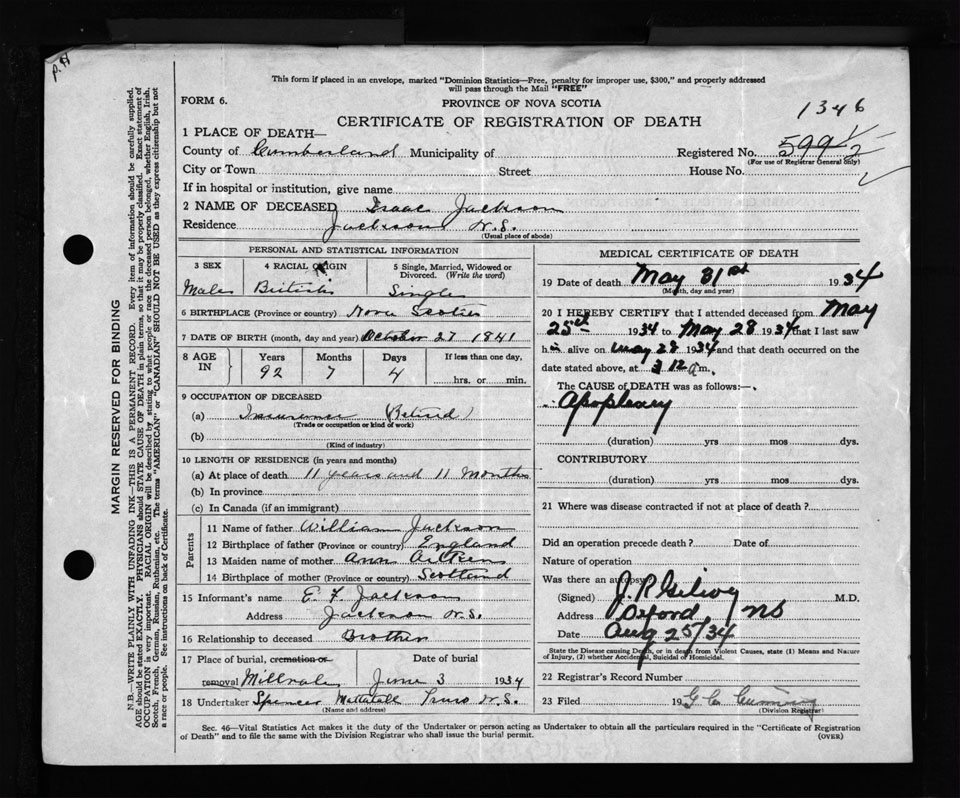 p. H
This form if placed in an envelope, marked "Dominion Statistics—Free, penalty for improper use, $300," and properly addressed
will pass through the Mail "FREE"
FORM 6.
PROVINCE OF NOVA SCOTIA
1346
CERTIFICATE OF REGISTRATION OF DEATH
1 PLACE OF DEATH—
County of Cumberland Municipality of Registered No. 599 1/2
(For use of Registrar General only)
City or Town Street House No.
If in hospital or institution, give name
2 NAME OF DECEASED Isaac Jackson
Residence Jackson N.S.
(Usual place of abode)
PERSONAL AND STATISTICAL INFORMATION
3 SEX 4 RACIAL ORIGIN 5 Single, Married, Widowed or Divorced. (Write the word)
Male British Single
6 BIRTHPLACE (Province or country) Nova Scotia
7 DATE OF BIRTH (month, day and year) October 27 1841
8 AGE IN Years Months Days If less than one day,
92 7 4 hrs. or min.
9 OCCUPATION OF DECEASED
(a) Insurance (Retired)
(Trade or occupation or kind of work)
(b)
(Kind of industry)
10 LENGTH OF RESIDENCE (in years and months)
(a) At place of death 11 years and 11 Months
(b) In province
(c) In Canada (if an immigrant)
Parents
11 Name of father William Jackson
12 Birthplace of father (Province or country) England
13 Maiden name of mother Ann
14 Birthplace of mother (Province or country) Scotland
15 Informant's name E. F. Jackson
Address Jackson N.S.
16 Relationship to deceased Brother
17 Place of burial, cremation or removal Millvale Date of burial June 3 1934
18 Undertaker Spencer Mattatall Truro N.S.
(Name and address)
MEDICAL CERTIFICATE OF DEATH
19 Date of death May 31st 1934
(Month, day and year)
20 I HEREBY CERTIFY that I attended deceased from May
25th 1934 to May 28 1934 that I last saw
him alive on May 28 1934 and that death occurred on the
date stated above, at 3 12 a m.
The CAUSE OF DEATH was as follows:—
Apoplexy
(duration) yrs mos dys.
CONTRIBUTORY
(duration) yrs mos dys.
21 Where was disease contracted if not at place of death?
Did an operation precede death? Date of
Nature of operation
Was there an autopsy
(Signed) J. R. M.D.
Address Oxford NS
Date Aug 25/34
State the Disease causing Death, or in death from Violent Causes, state (1) Means and Nature
of Injury, (2) whether Accidental, Suicidal or Homicidal.
22 Registrar's Record Number
23 Filed 19 G C Cumming
(Division Registrar)
Sec. 46—Vital Statistics Act makes it the duty of the Undertaker or person acting as Undertaker to obtain all the particulars required in the "Certificate of Registration
of Death" and to file the same with the Division Registrar who shall issue the burial permit. (OVER)
MARGIN RESERVED FOR BINDING
N.B.—WRITE PLAINLY WITH UNFADING INK—THIS IS A PERMANENT RECORD. Every item of information should be carefully supplied.
AGE should be stated EXACTLY. PHYSICIANS should STATE CAUSE OF DEATH in plain terms, so that it may be properly classified. Exact statement of
OCCUPATION is very important. RACIAL ORIGIN will be described by stating to what people or race the deceased person belonged, whether English, Irish,
Scotch, French, German, Russian, Ruthenian, etc. The terms "AMERICAN" or "CANADIAN" SHOULD NOT BE USED as they express citizenship but not
a race or people. See instructions on back of Certificate.